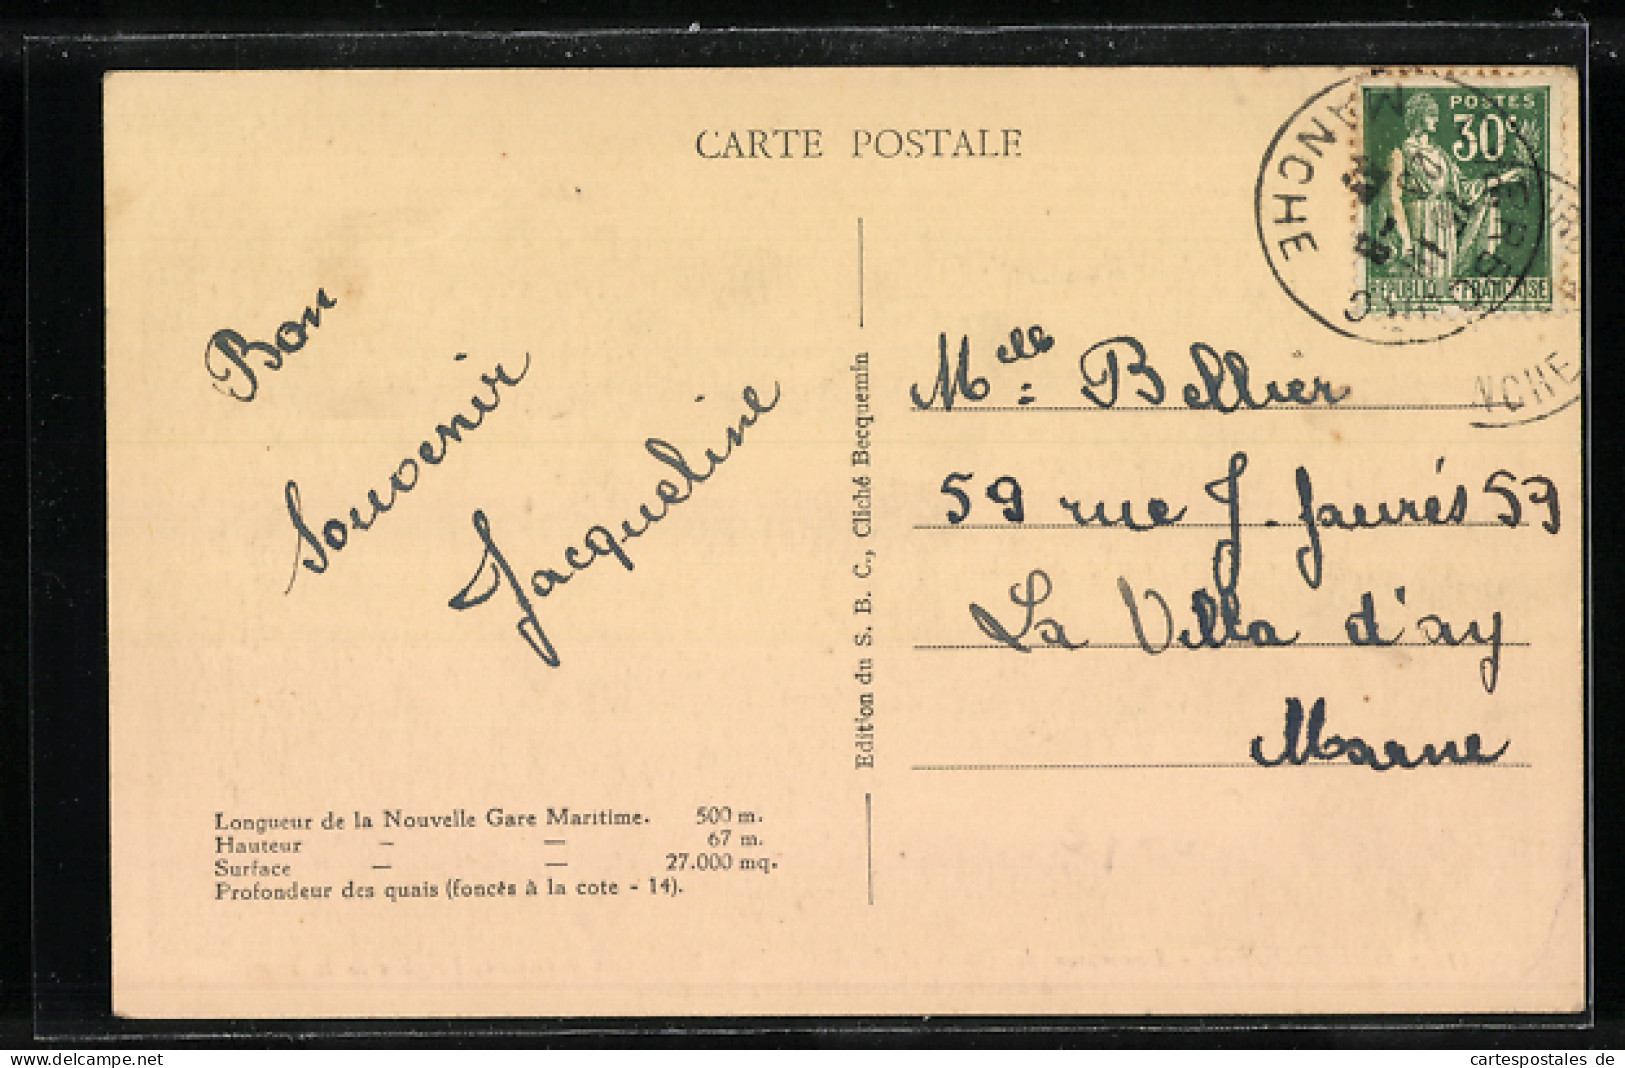 CARTE POSTALE
POSTES
30c
REPUBLIQUE FRANCAISE
CHERBOURG
MANCHE
NCHE
Bon
Souvenir
Jacqueline
Melle Bellier
59 rue J. Jaurés 59
La Villa d'ay
Marne
Edition du S. B. C., Cliché Becquemin
Longueur de la Nouvelle Gare Maritime. 500 m.
Hauteur — — 67 m.
Surface — — 27.000 mq.
Profondeur des quais (foncés à la cote - 14).
hand-delcampe.net
cartespostales de